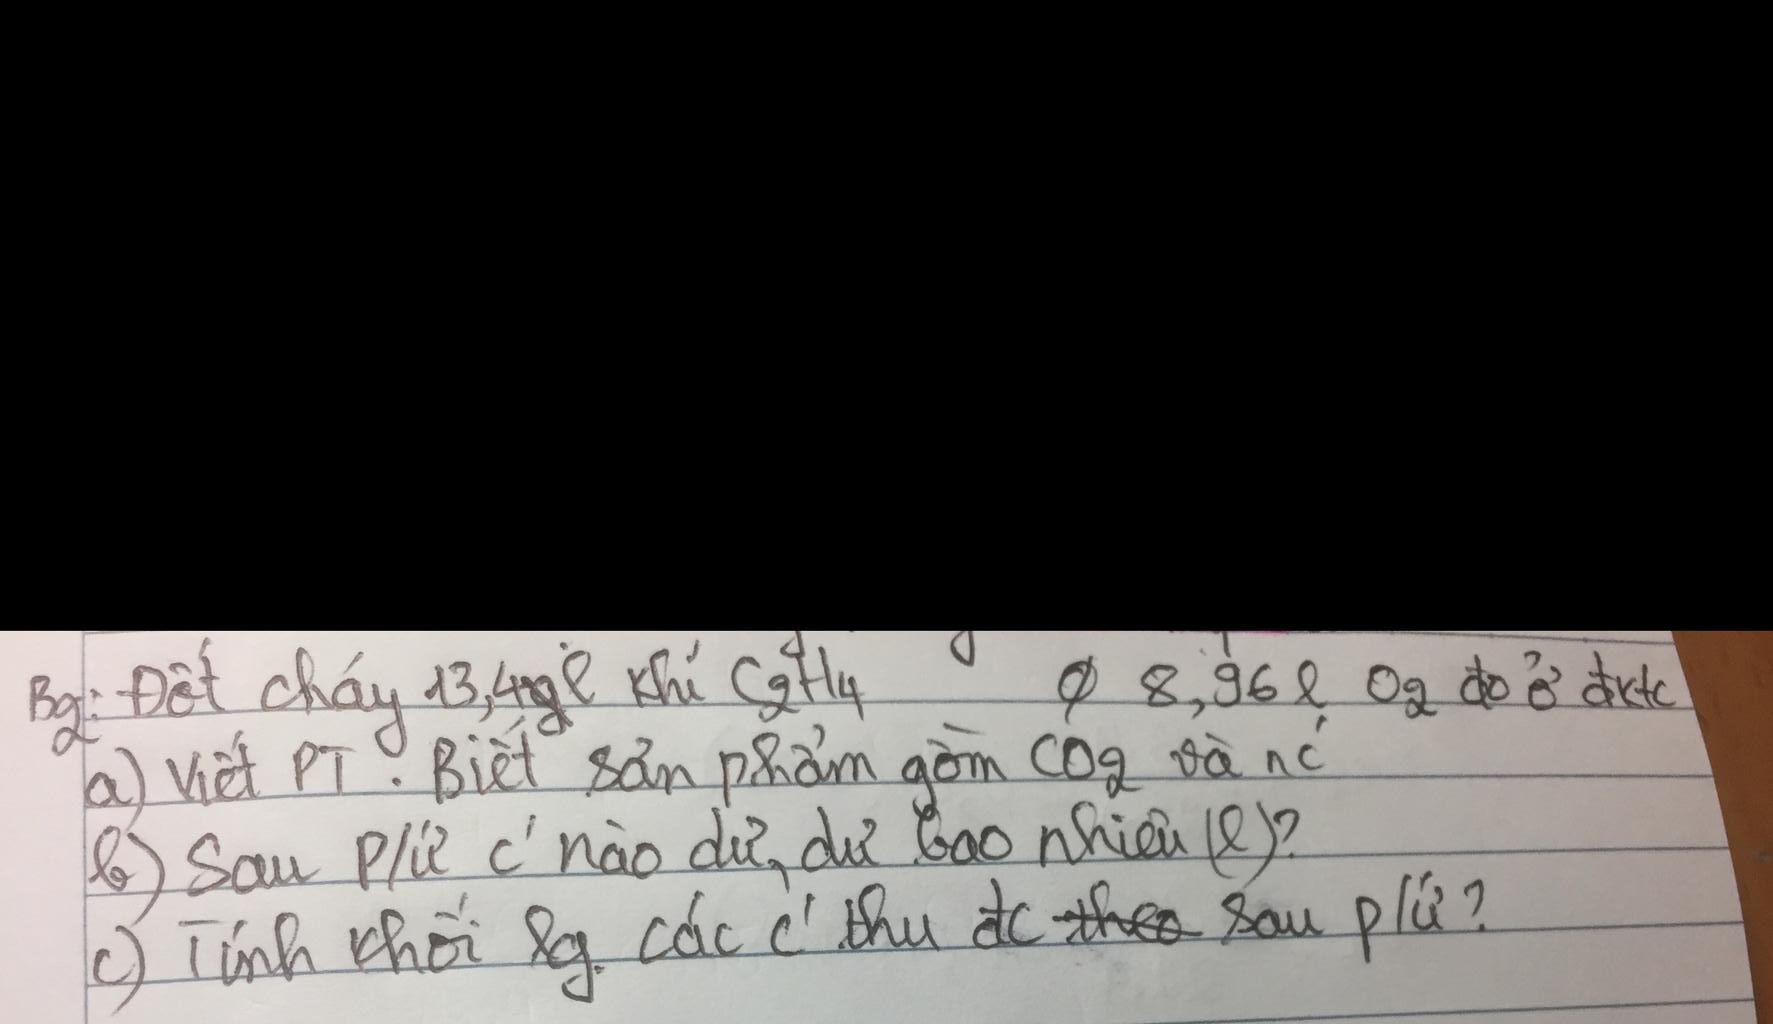 B2: Đốt cháy 13,44 l khí C2H4 8,96 l O2 đo ở đktc
a) Viết PT. Biết sản phẩm gồm CO2 và nc'
b) Sau p/ứ c' nào dư, dư bao nhiêu (l)?
c) Tính khối lg. các c' thu đc theo sau p/ứ?